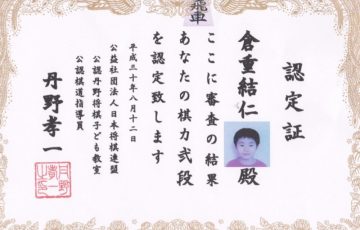 飛車
認定証
倉重結仁殿
ここに審査の結果
あなたの棋力弐段
を認定致します
平成三十年八月十二日
公益社団法人日本将棋連盟
公認丹野将棋子ども教室
公認棋道指導員
丹野孝一